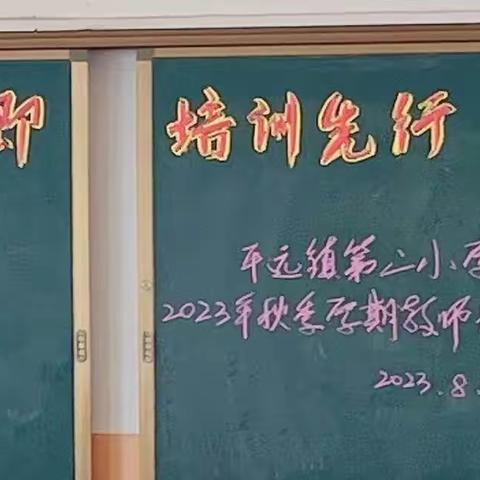 即 培训先行
平远镇第二小学
2023年秋季学期教师
2023.8.